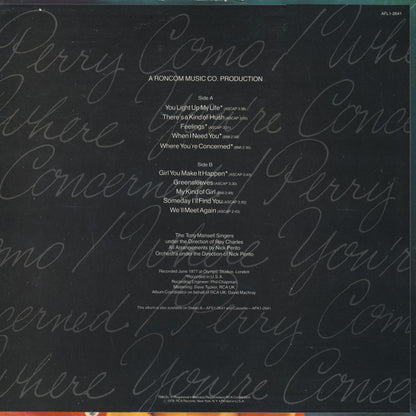 AFL1-2641
Perry Como / Where
You're
Concerned / Perry
A RONCOM MUSIC CO. PRODUCTION
Side A
You Light Up My Life* (ASCAP 3:38)
There's a Kind of Hush (ASCAP 3:05)
Feelings* (ASCAP 3:21)
When I Need You* (BMI 3:58)
Where You're Concerned* (BMI 2:30)
Side B
Girl You Make It Happen* (ASCAP 2:43)
Greensleeves (ASCAP 3:30)
My Kind of Girl (BMI 2:48)
Someday I'll Find You (ASCAP 2:30)
We'll Meet Again (ASCAP 2:42)
The Tony Mansell Singers
under the Direction of Ray Charles
All Arrangements by Nick Perito
Orchestra under the Direction of Nick Perito
Recorded June 1977 at Olympic Studios, London
*Recorded in U.S.A.
Recording Engineer: Phil Chapman
Mastering: Dave Tucker, RCA UK
Album Coordinator on behalf of RCA UK, David Machray
This album is also available on Stereo 8 – AFS1-2641 and Cassette – AFK1-2641
Where You're